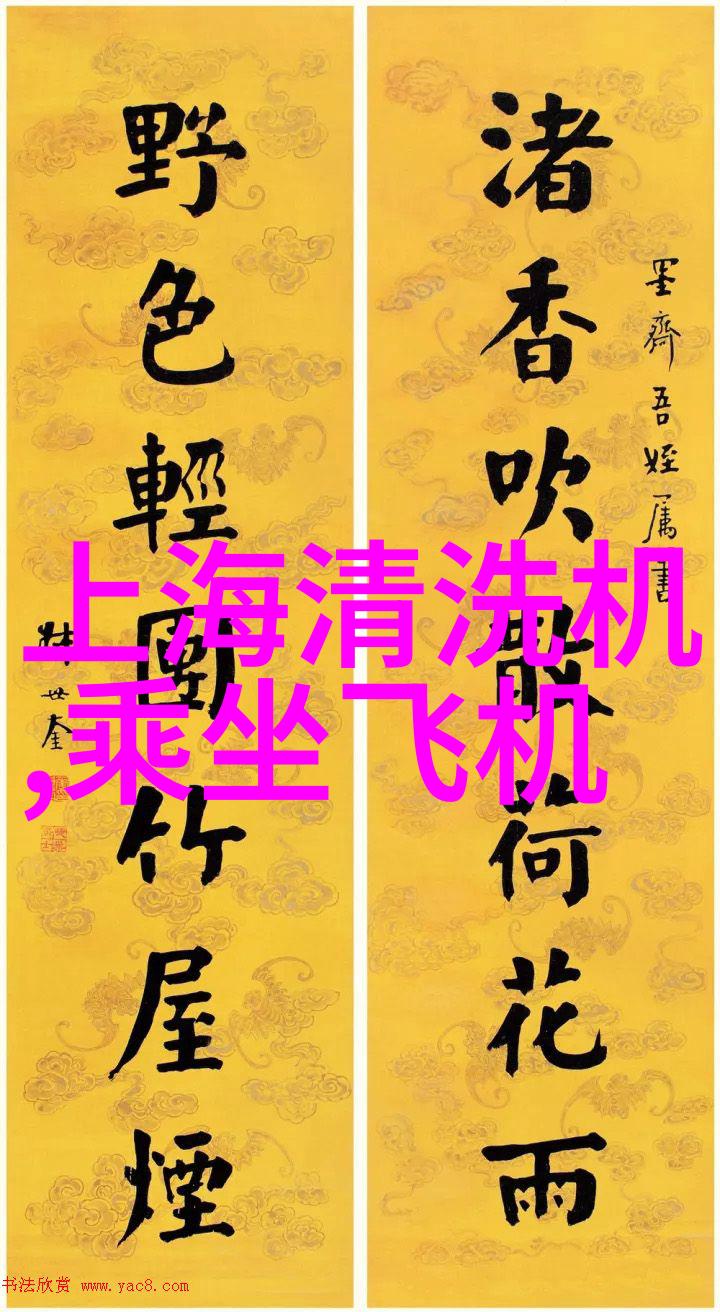 墨齋吾姪属書
渚香吹散荷花雨
野色輕團竹屋煙
華世奎
上海清洗机
,乘坐飞机
书法欣赏 www.yac8.com